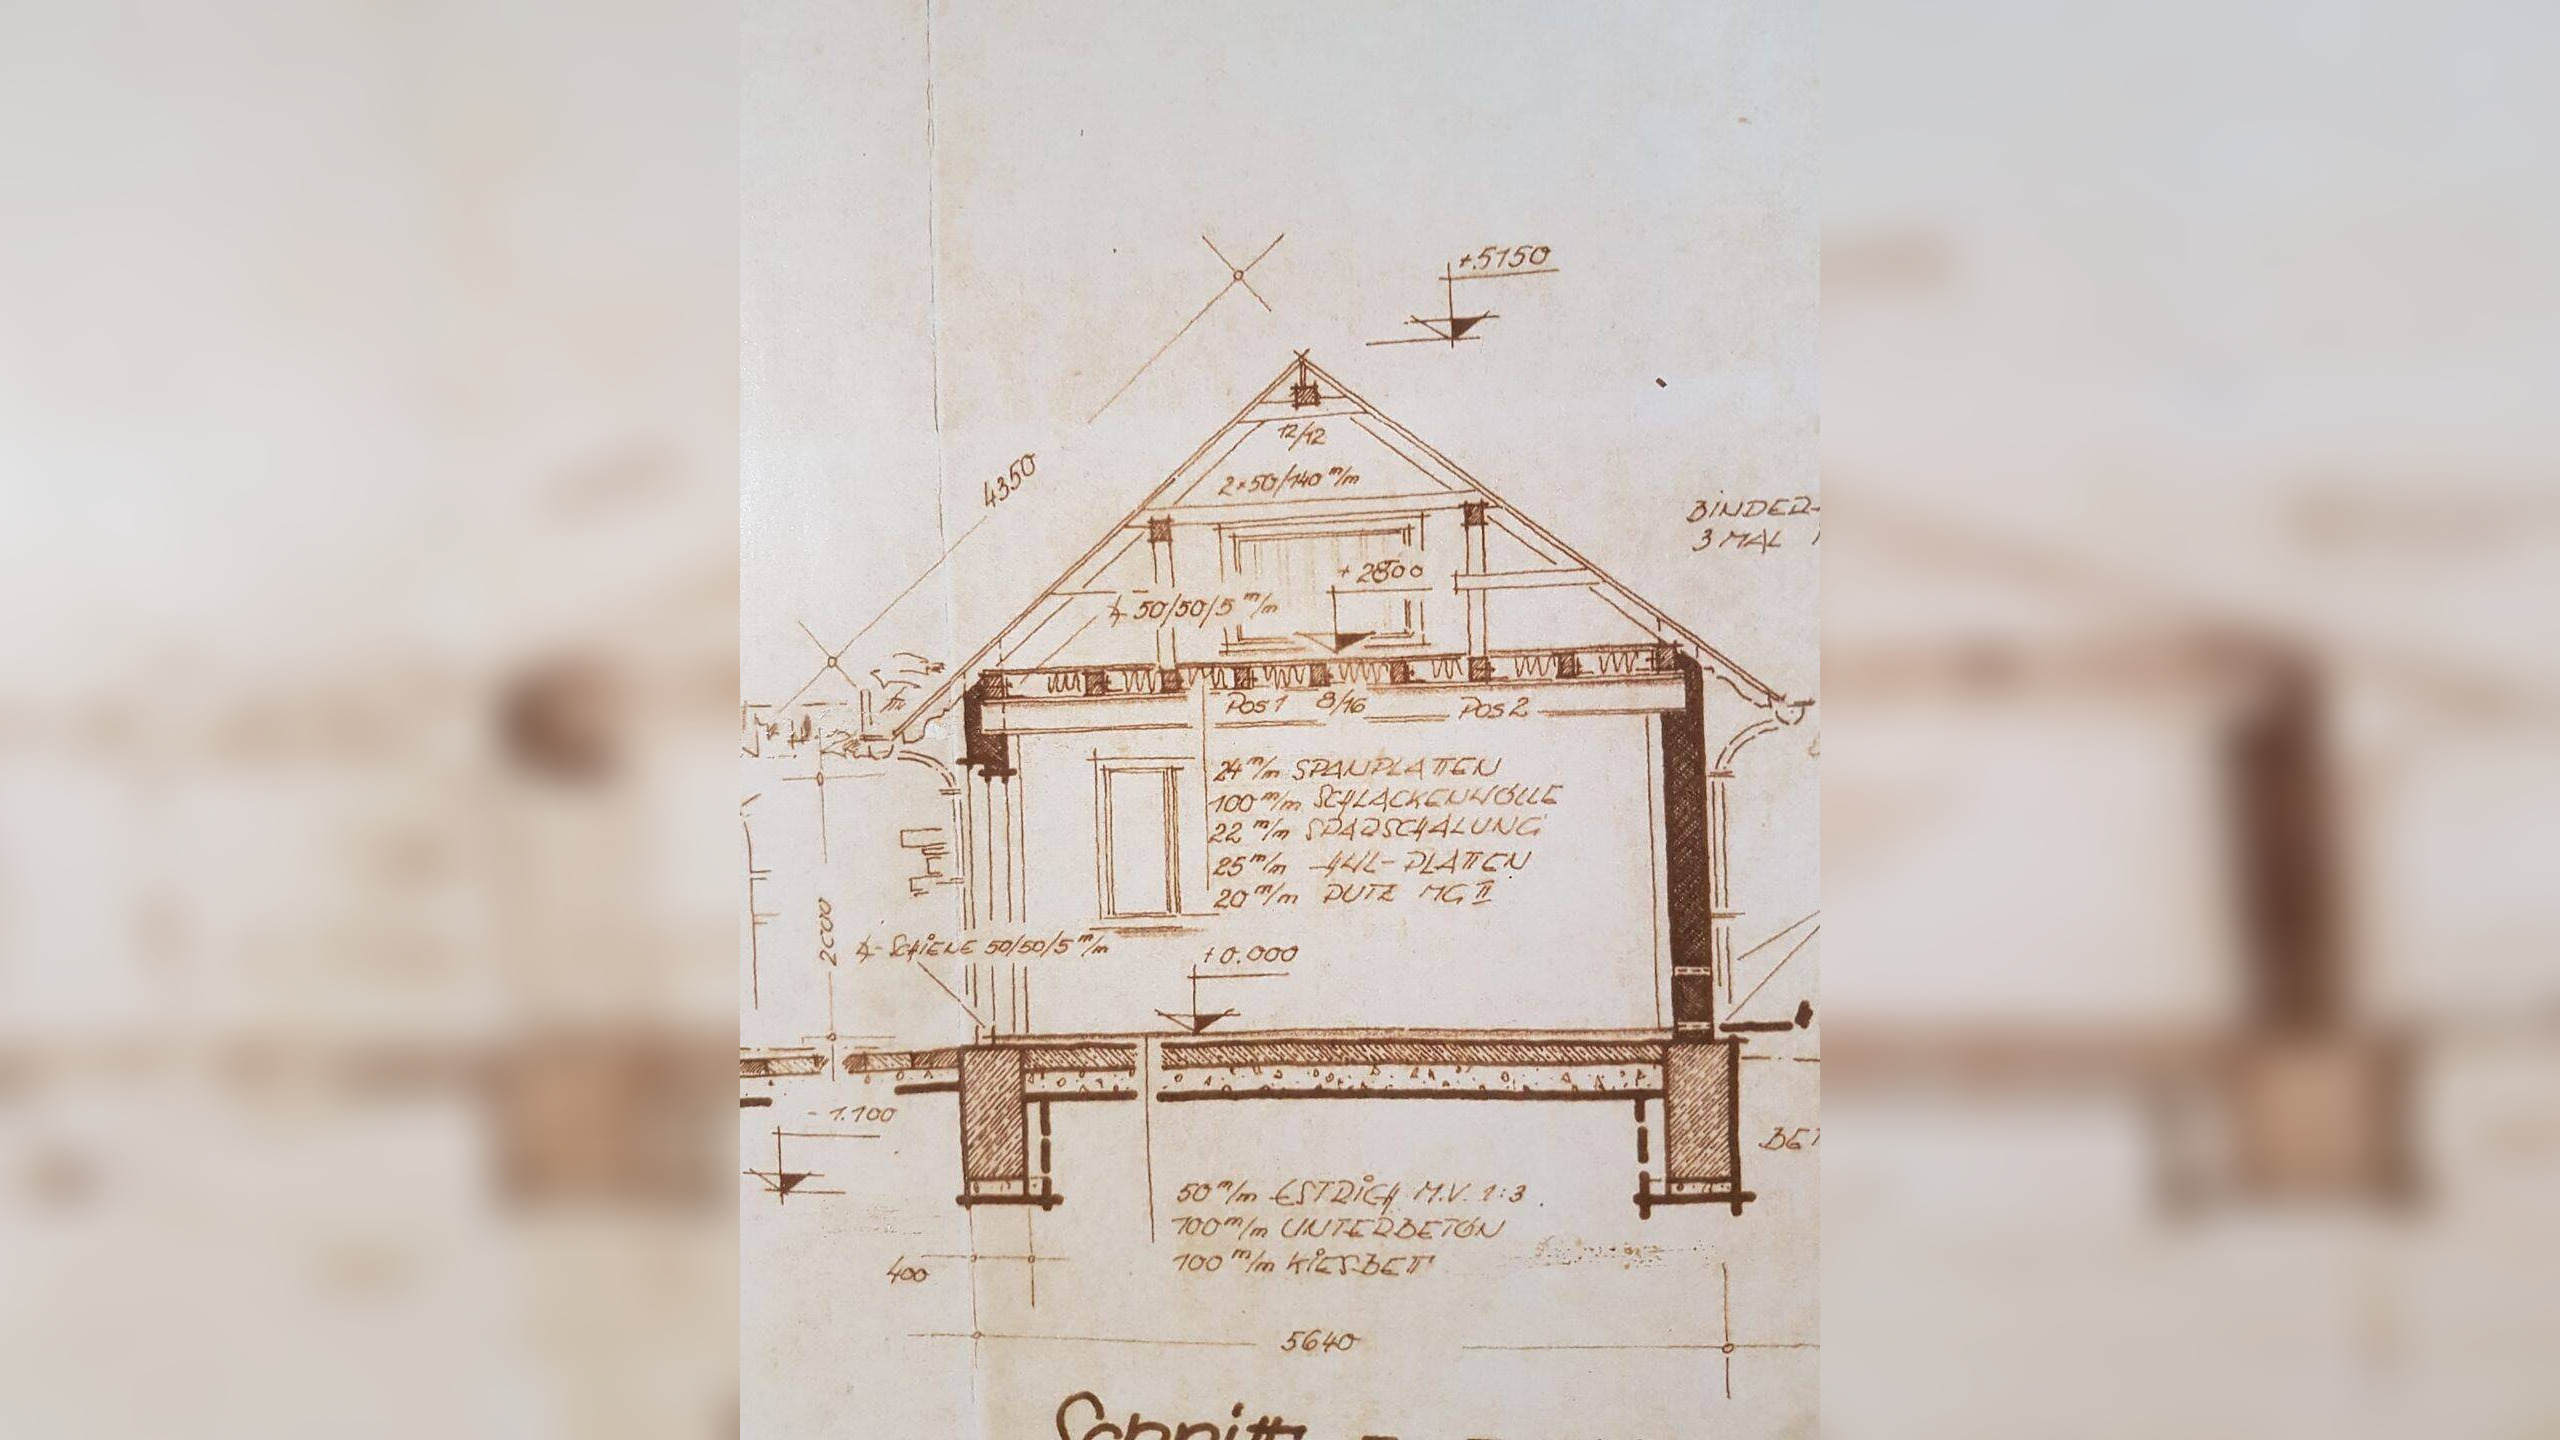 +5150
4350
12/12
2×50/140 m/m
BINDER-
3 MAL
+2800
∡ 50/50/5 m/m
Pos 1 8/16 Pos 2
24 m/m SPANPLATTEN
100 m/m SCHLACKENWOLLE
22 m/m SPARSCHALUNG
25 m/m HWL-PLATTEN
20 m/m PUTZ MG II
2000
∡-SCHIENE 50/50/5 m/m
+0.000
-1.100
50 m/m ESTRICH M.V. 1:3
100 m/m UNTERBETON
100 m/m KIESBETT
400
5640
Schnitt